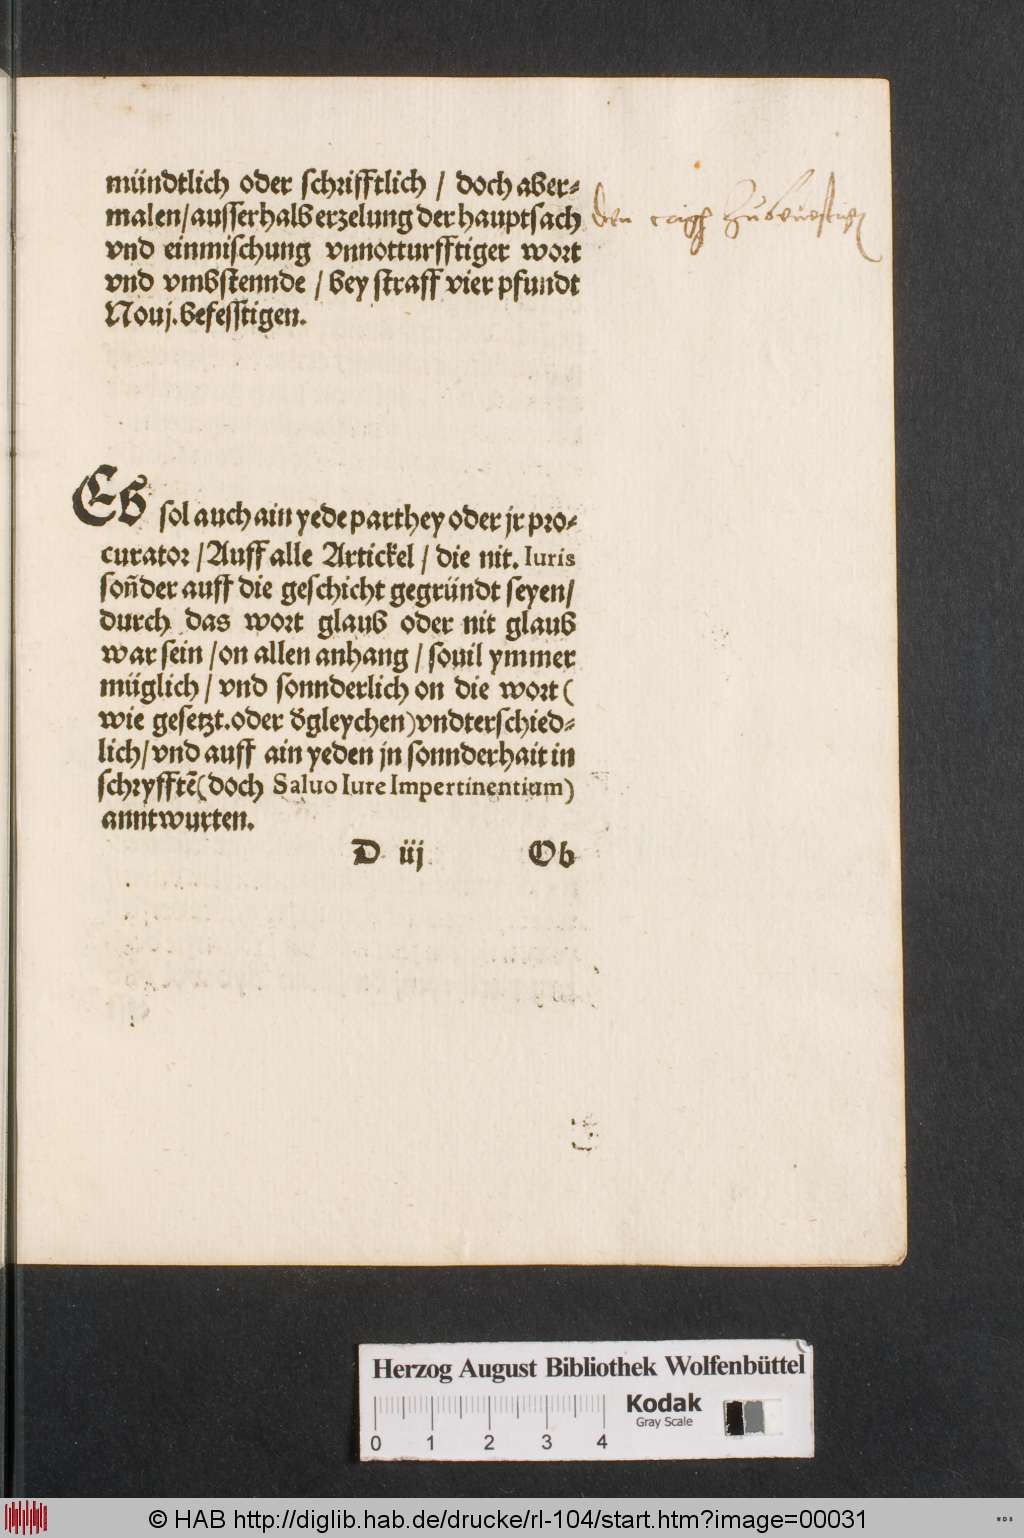 mündtlich oder schrifftlich / doch aber⸗
malen/ausserhalb erzelung der hauptsach
vnd einmischung vnnotturfftiger wort
vnd vmbstennde / bey straff vier pfundt
Nouj. befesstigen.
den zubeuestigen
Es sol auch ain yede parthey oder jr pro⸗
curator / Auff alle Artickel / die nit. Iuris
son̄der auff die geschicht gegründt seyen/
durch das wort glaub oder nit glaub
war sein / on allen anhang / souil ymmer
müglich / vnd sonnderlich on die wort (
wie gesetzt. oder d̄gleychen) vndterschied⸗
lich/ vnd auff ain yeden jn sonnderhait in
schryfftē (doch Saluo Iure Impertinentium)
anntwurten.
D iij Ob
Herzog August Bibliothek Wolfenbüttel
Kodak
Gray Scale
0 1 2 3 4
© HAB http://diglib.hab.de/drucke/rl-104/start.htm?image=00031